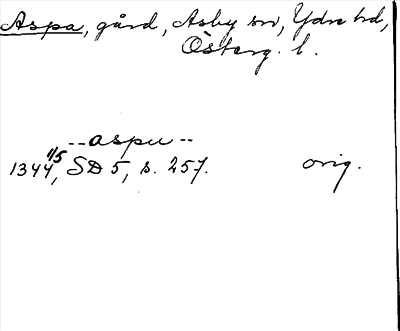 Aspa, gård, Asby sn, Ydre hd,
Österg. l.
--aspu--
1344 1/5, SD 5, s. 257. orig.